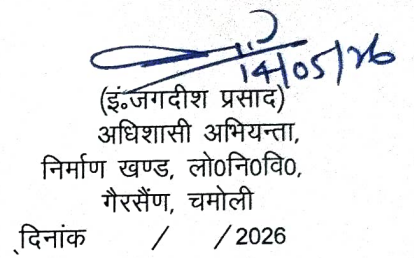 14/05/26
(इं०जगदीश प्रसाद)
अधिशासी अभियन्ता,
निर्माण खण्ड, लो0नि0वि0,
गैरसैंण, चमोली
दिनांक / / 2026